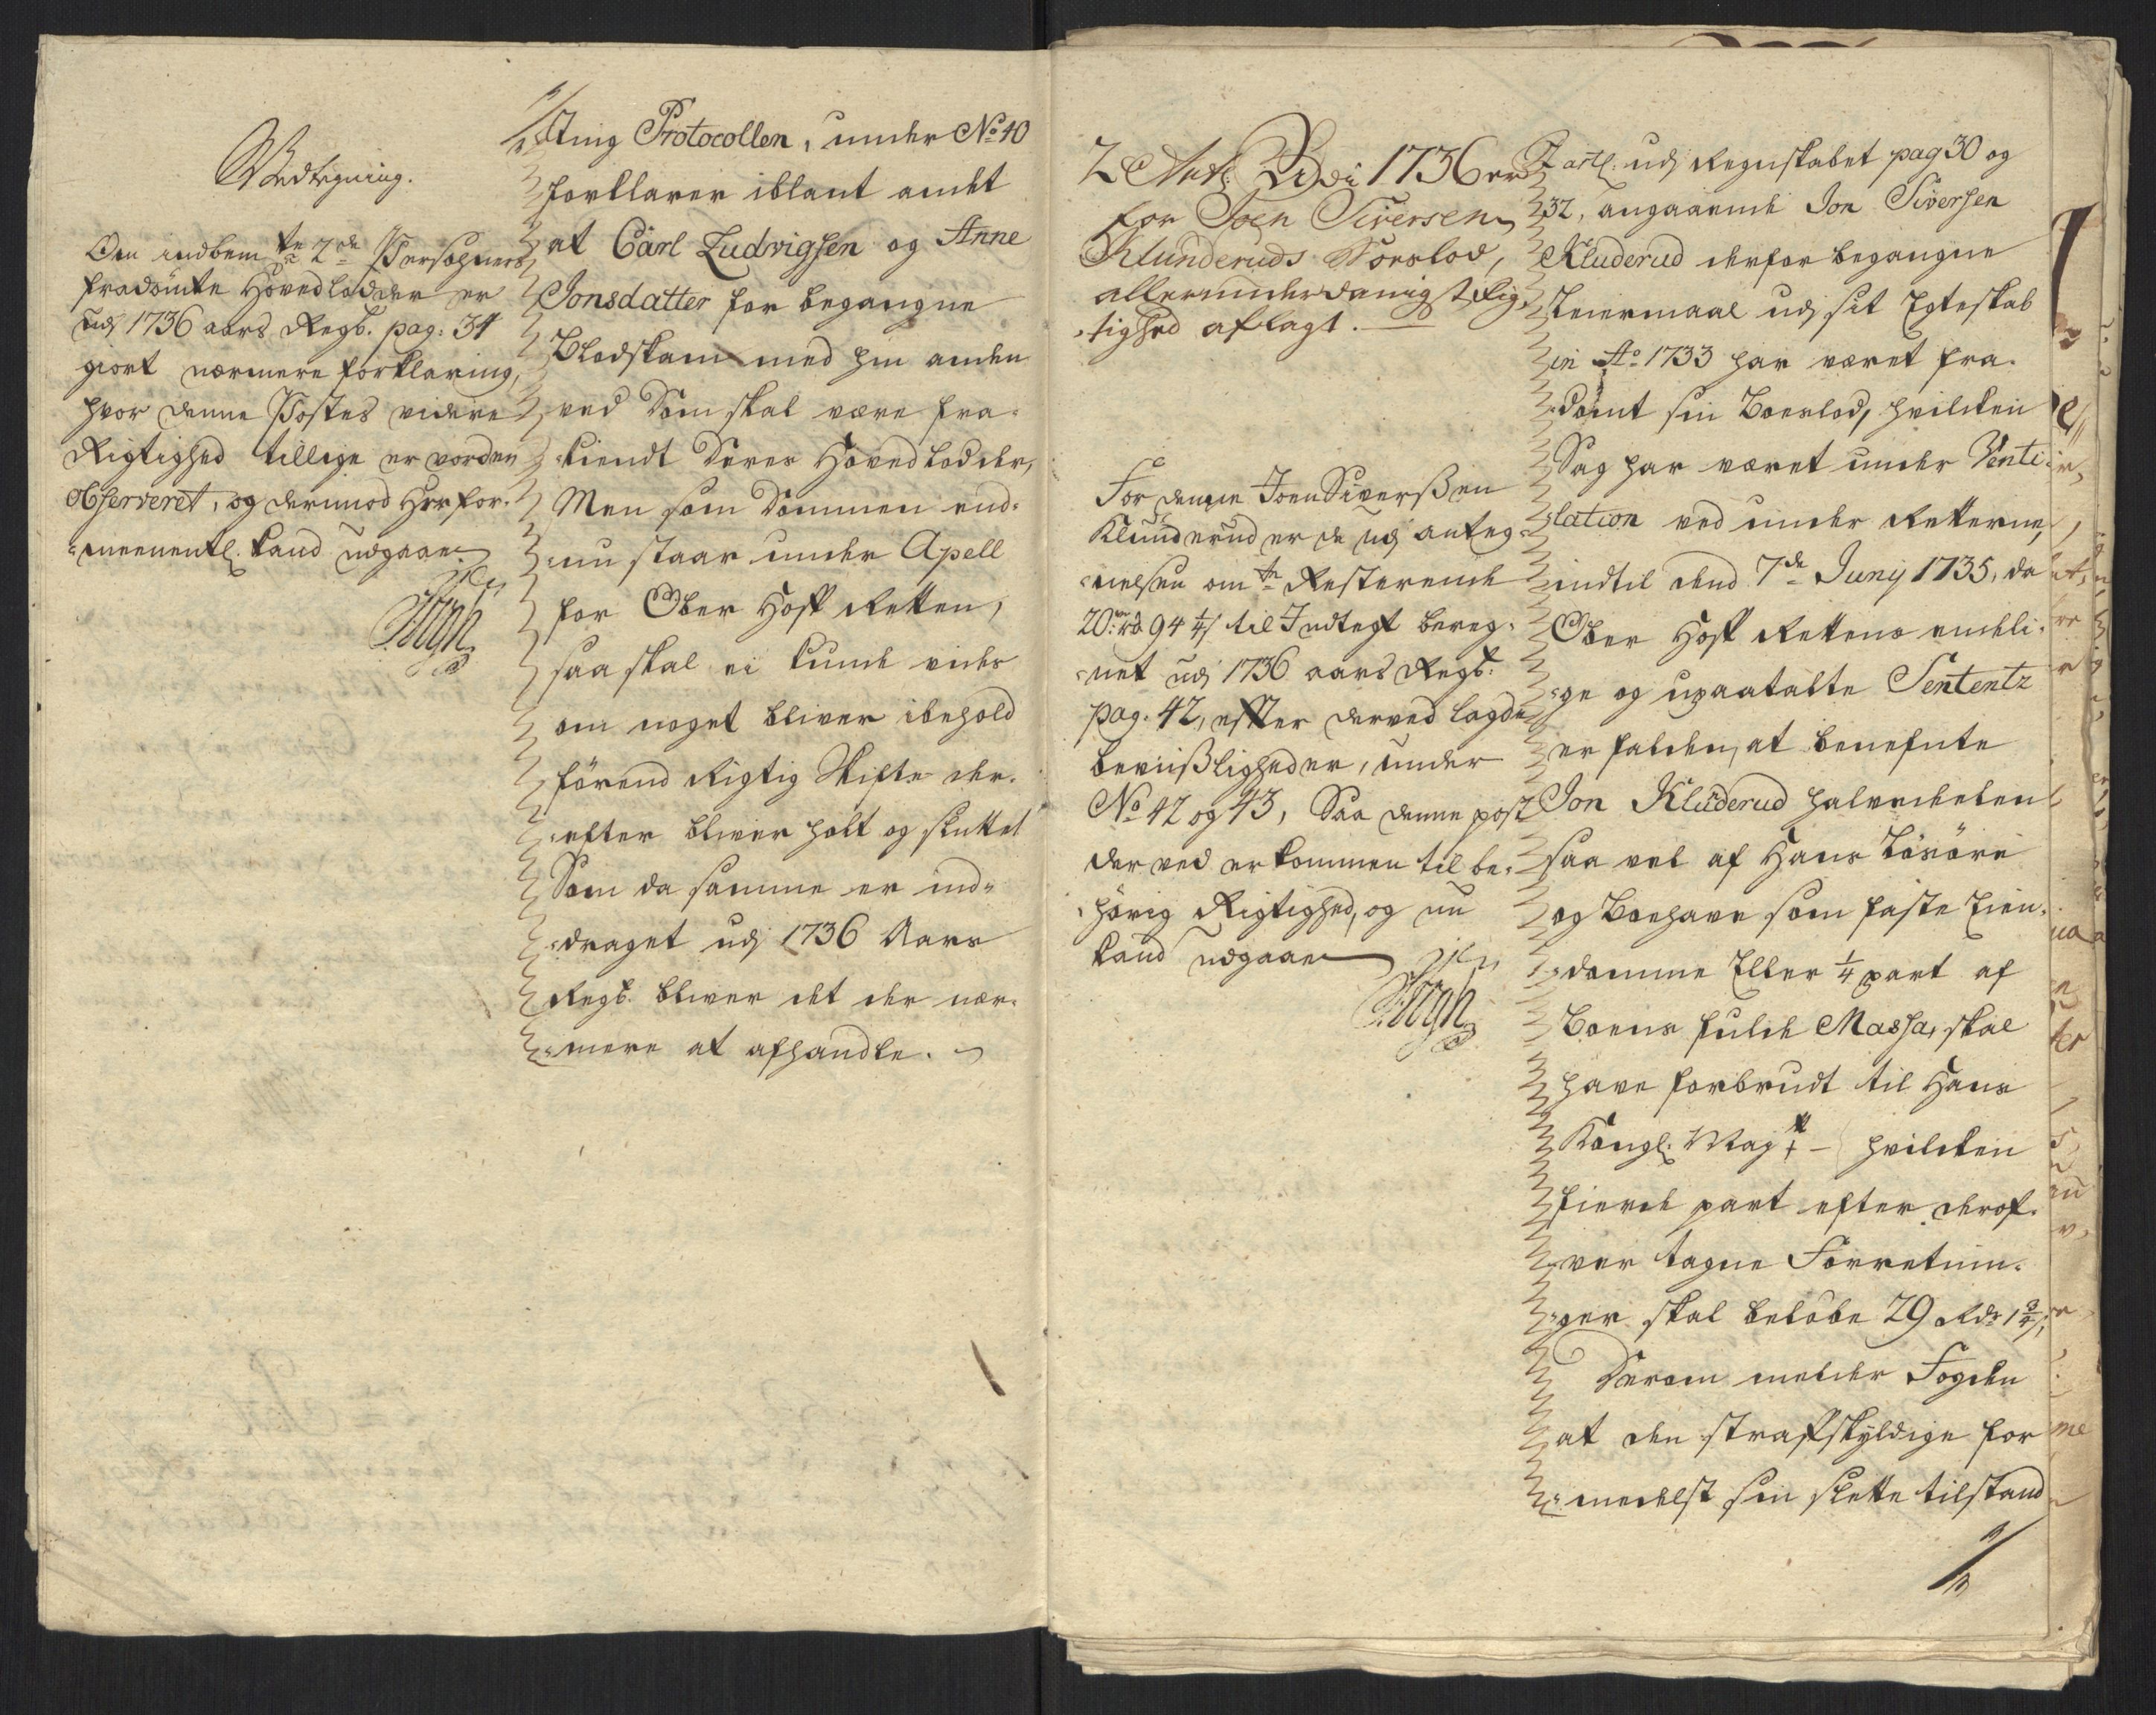 Vedtegning.
Om indbem.te 2de Persohners
fradömte Hovedlodder er
udj 1736 aars Regsk. pag: 34
giort nærmere forklaring,
hvor denne Postes videre
Rigtighed tillige er worden
observeret, og derimod Her for-
meenentl. kand udgaae
ting Protocollen, under No 40
forklarer iblant andet
at Carl Ludvigsen og Anne
Jonsdatter for begangne
Blodskam med hin anden
ved Dom skal være fra-
kiendt deres Hovedlodder,
Men som Dommen end-
nu staar under Apell
for Ober Hoff Retten,
saa skal ei kunde vides
om noget bliver ibehold
förend Rigtig Skifte der-
efter bliver holt og sluttet
Som da samme er ind-
draget udj 1736 Aars
Regsk. bliver det der nær-
mere at afhandle.
2 Ant: Udi 1736 er
for Joen Siversen
Klunderuds Boeslod,
allerunderdanigst Rig-
tighed aflagt.
For denne Joen Siverßen
Klunderud er de udj anteg-
nelsen om Resterende
20 rd 94 1/4 s til Indtegt bereg-
net udj 1736 aars Regsk:
pag. 42, efter derved lagde
beviißligheder, under
No 42 og 43, Saa denne post
der ved er kommen til be-
hörig Rigtighed, og nu
kand udgaae
2 artl: udj Regnskabet pag 30 og
32, angaaende Jon Siversen
Kluderud der for begangne
Leiermaal udj sit Egteskab
in Ao 1733 har været fra-
dömt sin Boeslod, hvilcken
Sag har været under Venti-
lation ved under Retterne,
indtil dend 7de Junij 1735, da
Ober Hoff Rettens endeli-
ge og upaatalte Sententz
er falden, at benefnte
Jon Kluderud halvedelen
saa vel af Hans Lösöre
og Boehave som faste Eien-
domme Eller 1/4 part af
Boens fulde Massa, skal
have forbrudt til Hans
Kongl. Mayt - hvilcken
fierde part efter derof-
ver tagne Forretnin-
ger skal belöbe 29 Rdr 1 3/4 s,
Derom melder Fogden
at den straffskyldige for
medelst sin slette tilstand